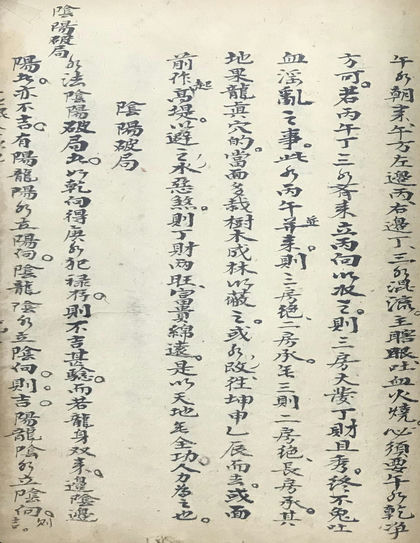 午水朝來午方左邊丙右邊丁三水混流主瞎眼吐血火燒必須要午水乾淨
方可若丙午丁三水齊來立丙向以收之則三房大發丁財且秀終不免吐
血淫亂之事此水丙午並來則三房絕二房承午三則二房絕長房承其
地果龍真穴的當面多栽樹木成林以蔽之或水改往坤申乙辰而去或面
前作起高堤以避之永惡煞則丁財兩旺富貴綿遠是以天地無全功人力為之也
陰陽破局
水法陰陽破局如以乾向得庚水犯祿存則不吉甚驗而若龍身双來邊陰邊
陽亦不吉有陽龍陽水立陽向陰龍陰水立陰向則吉陽龍陰水立陰向則吉
陰陽破局